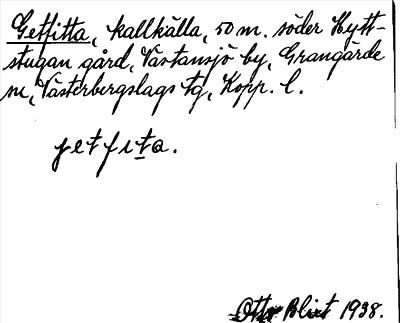 Getfitta, kallkälla, 50 m. söder Hytt-
stugan gård, Västansjö by, Grangärde
sn, Västerbergslags tg, Kopp. l.
jetfita.
Otto Blixt 1938.